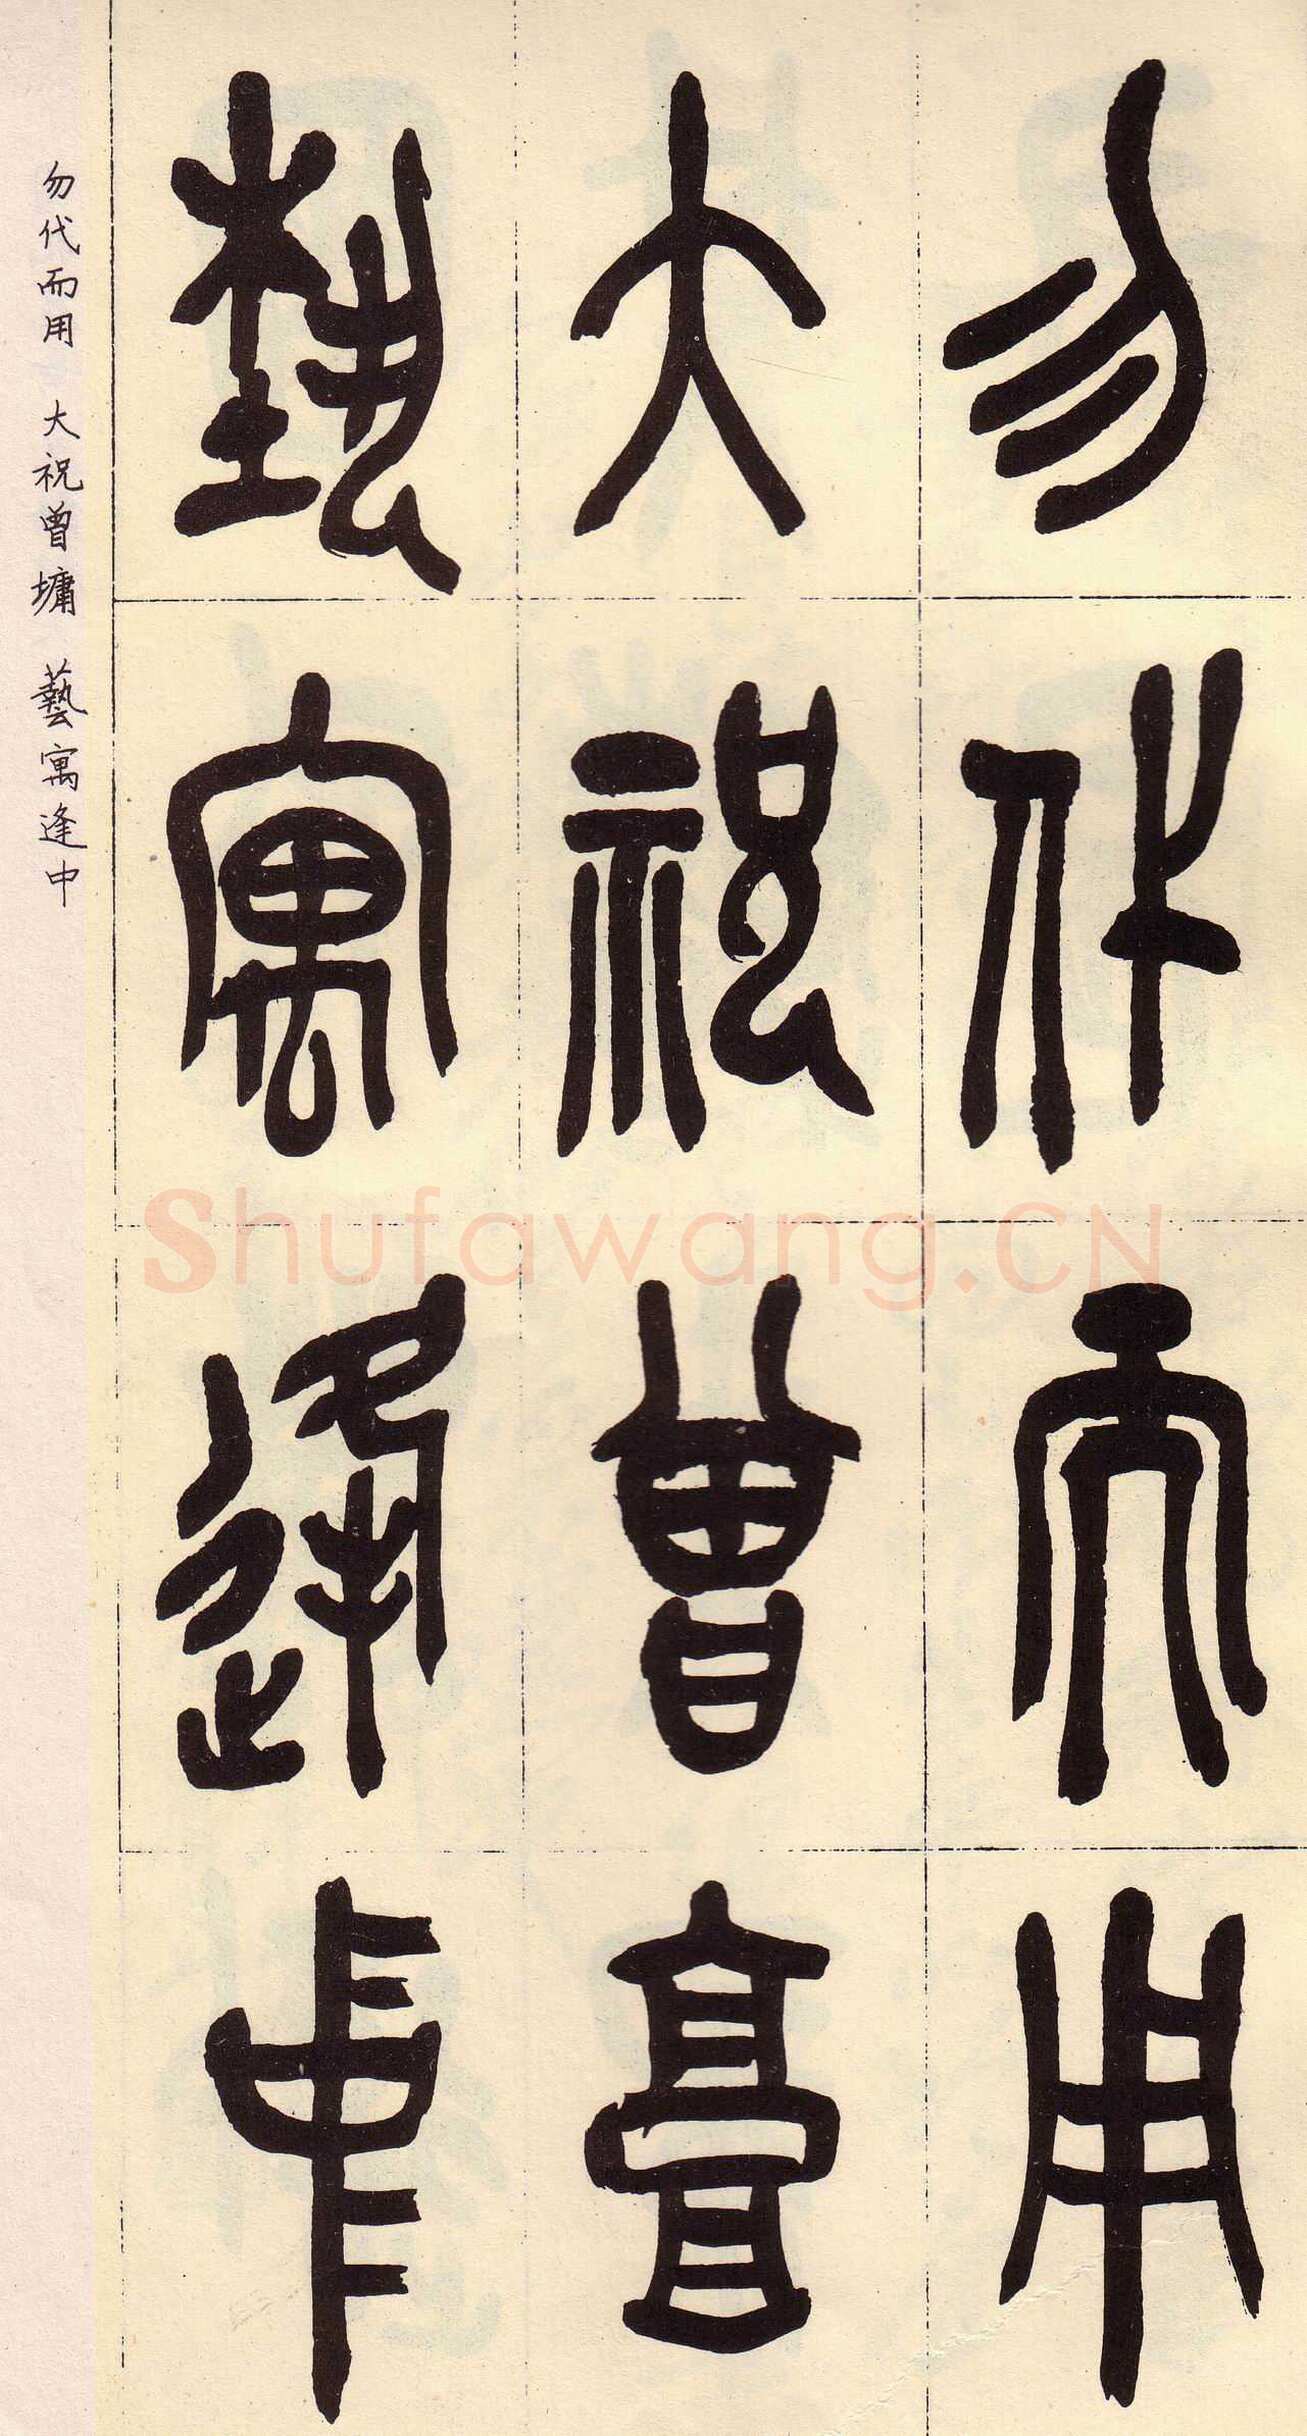 勿伐而用
大祝曾墉
藝寓逢中
勿代而用 大祝曾墉 藝寓逢中
Shufawang.CN